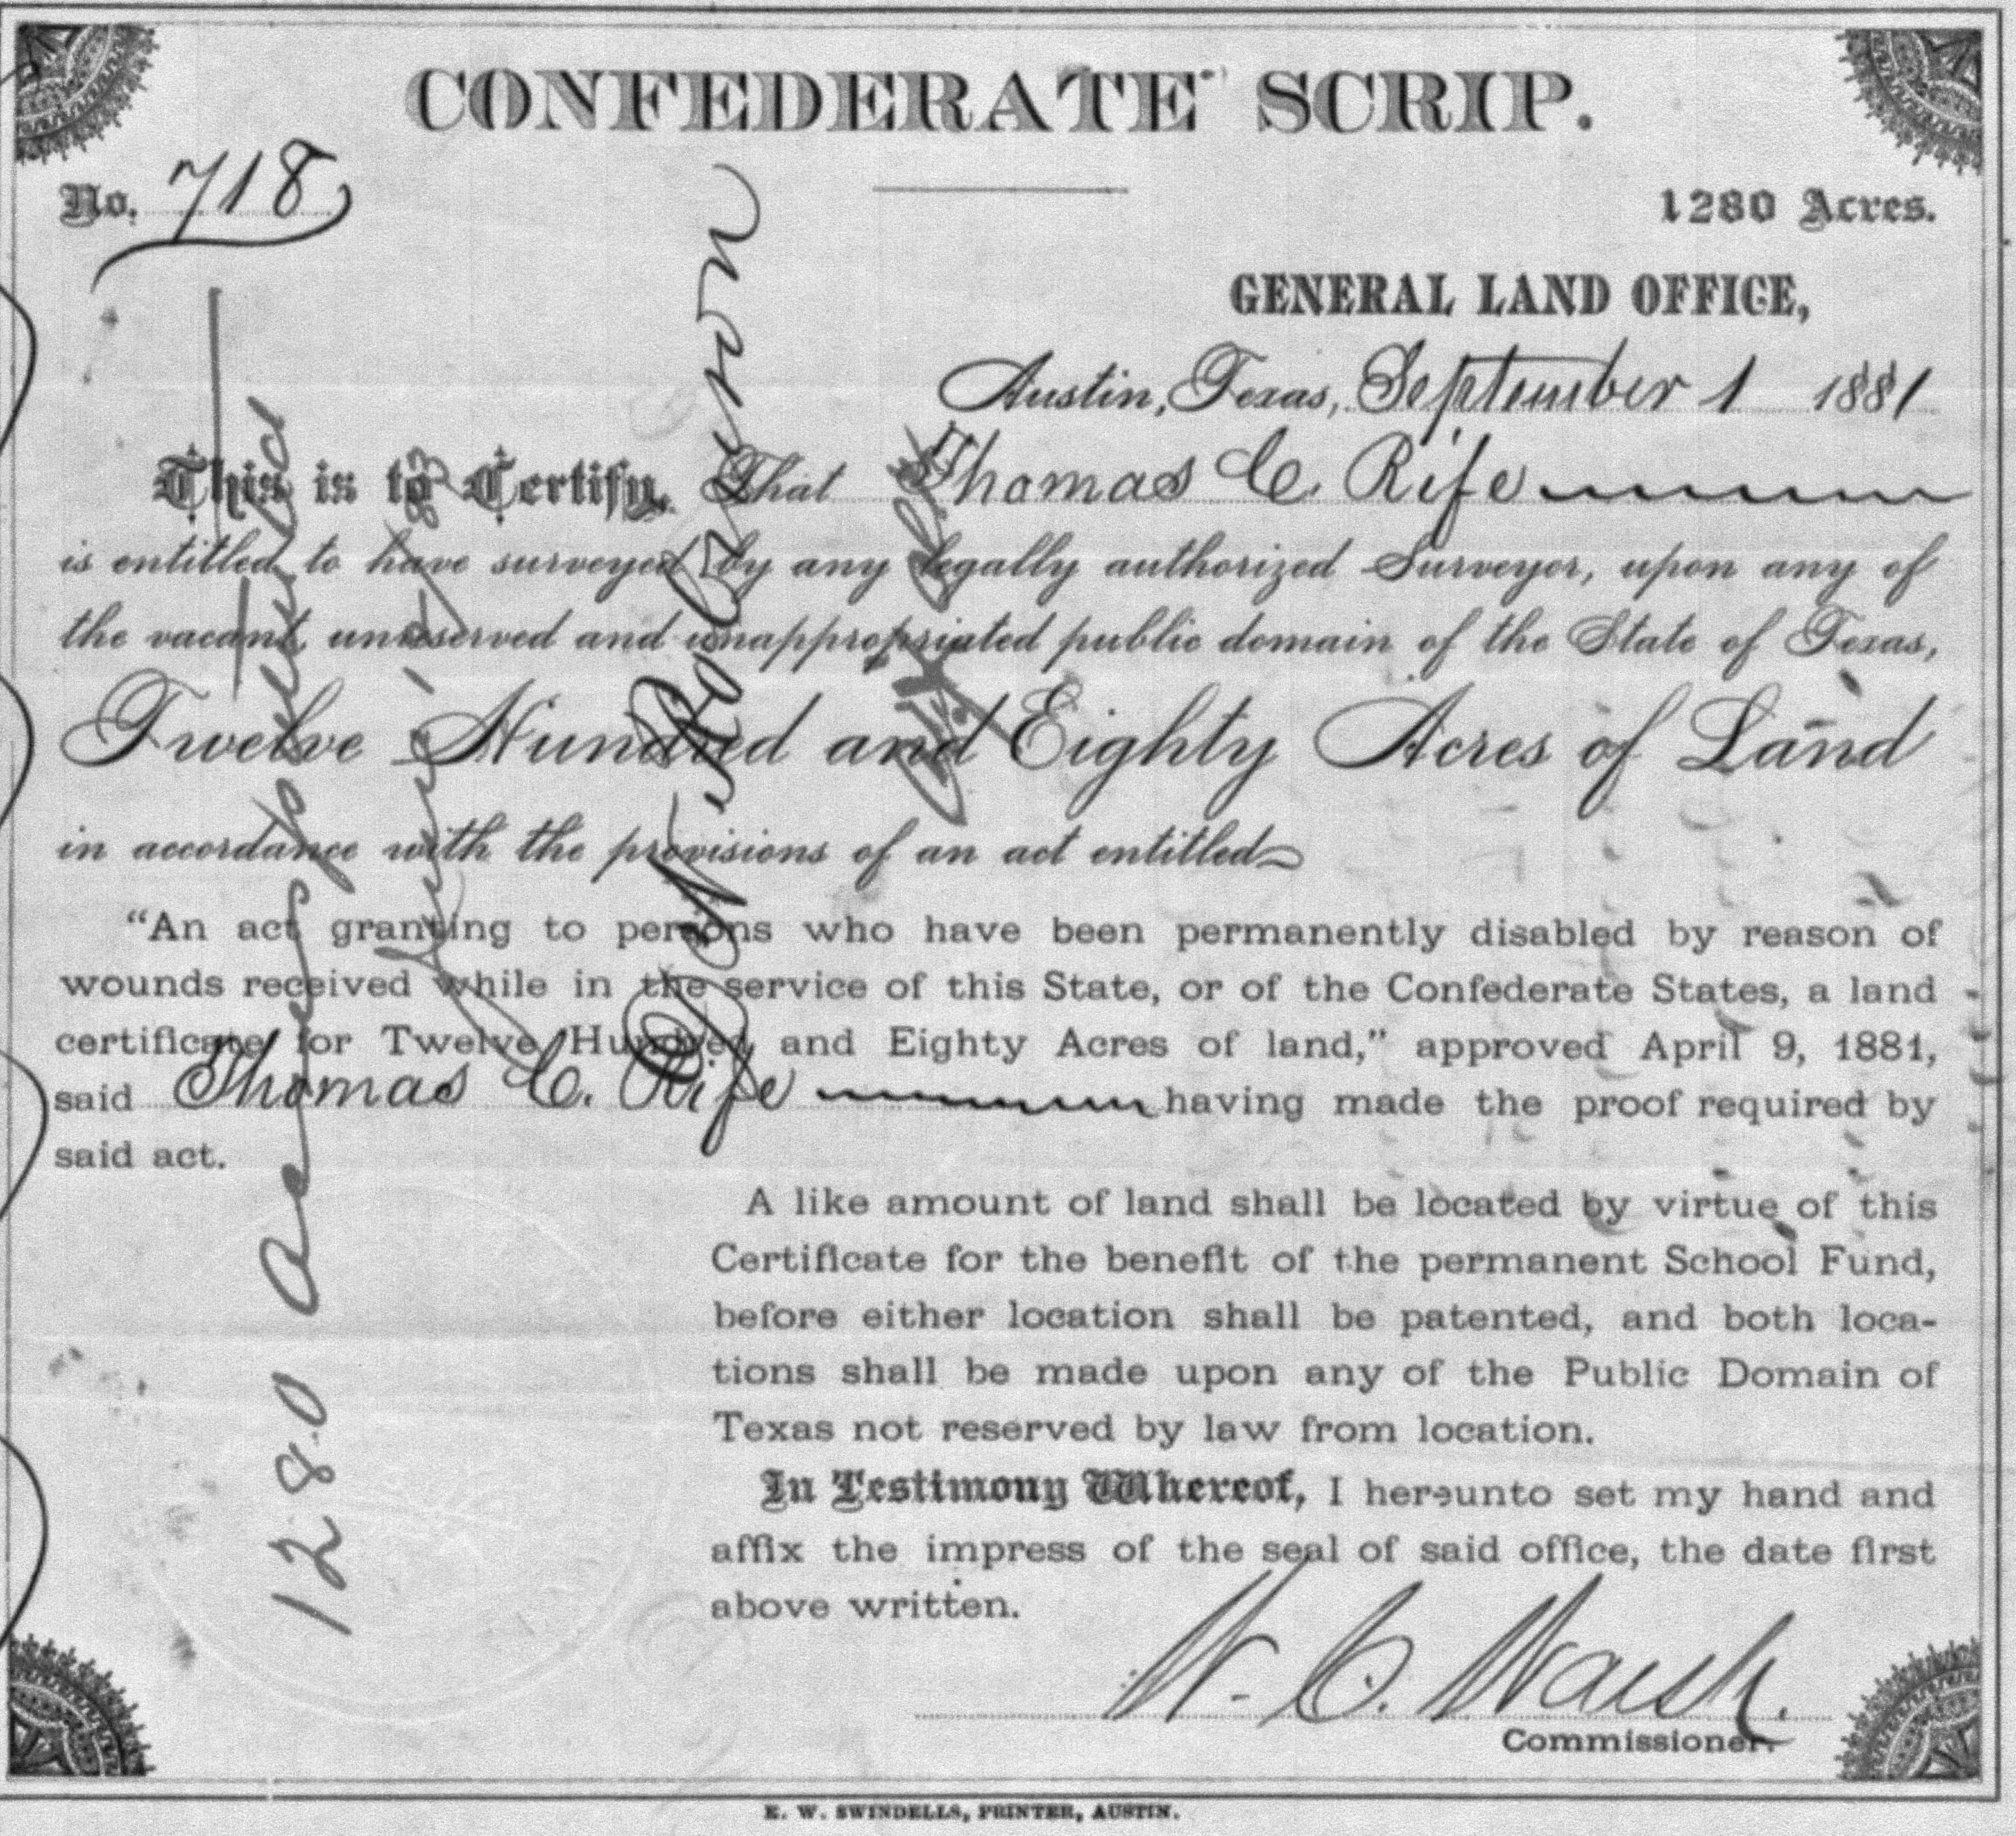 CONFEDERATE SCRIP.
No. 718
1280 Acres.
GENERAL LAND OFFICE,
Austin, Texas, September 1 1881
This is to Certify, That Thomas C. Rife
is entitled to have surveyed by any legally authorized Surveyor, upon any of
the vacant, unreserved and unappropriated public domain of the State of Texas,
Twelve Hundred and Eighty Acres of Land
in accordance with the provisions of an act entitled
“An act granting to persons who have been permanently disabled by reason of
wounds received while in the service of this State, or of the Confederate States, a land
certificate for Twelve Hundred and Eighty Acres of land,” approved April 9, 1881,
said Thomas C. Rife having made the proof required by
said act.
A like amount of land shall be located by virtue of this
Certificate for the benefit of the permanent School Fund,
before either location shall be patented, and both loca-
tions shall be made upon any of the Public Domain of
Texas not reserved by law from location.
In Testimony Whereof, I hereunto set my hand and
affix the impress of the seal of said office, the date first
above written.
W. C. Walsh.
Commissioner.
E. W. SWINDELLS, PRINTER, AUSTIN.
1280